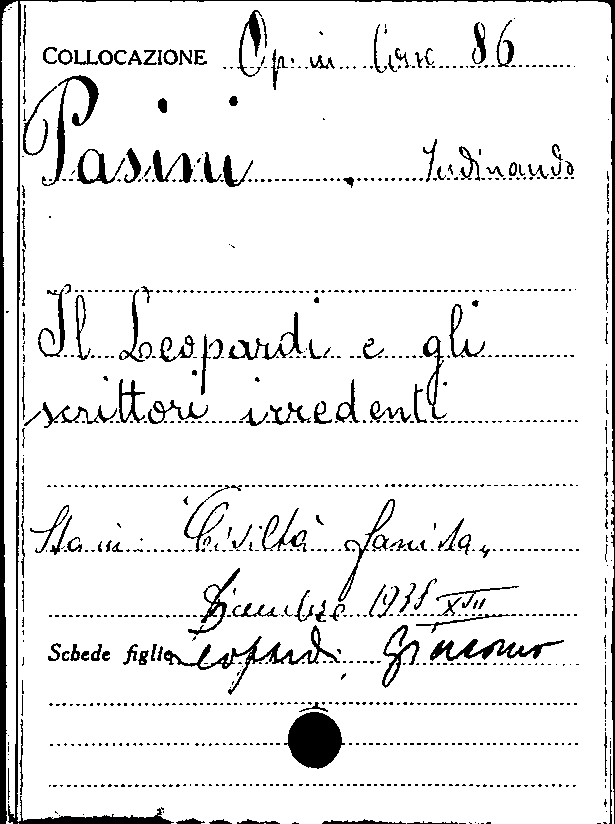 COLLOCAZIONE Op. in Cerc 86
Pasini, Ferdinando
Il Leopardi e gli
scrittori irredenti
Sta in: "Civiltà fascista"
Dicembre 1935 XIII
Schede figlie Leopardi, Giacomo